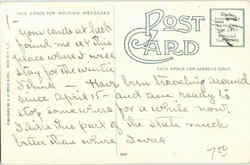 THIS SPACE FOR WRITING MESSAGES
POST
CARD
THIS SPACE FOR ADDRESS ONLY
your cards at last
found me at this
place where I may
stay for the winter
I think - Have been traveling around
since April 15 - and am ready to
stop somewhere for a while now.
I like this part of the state much
better than where I was
7.00